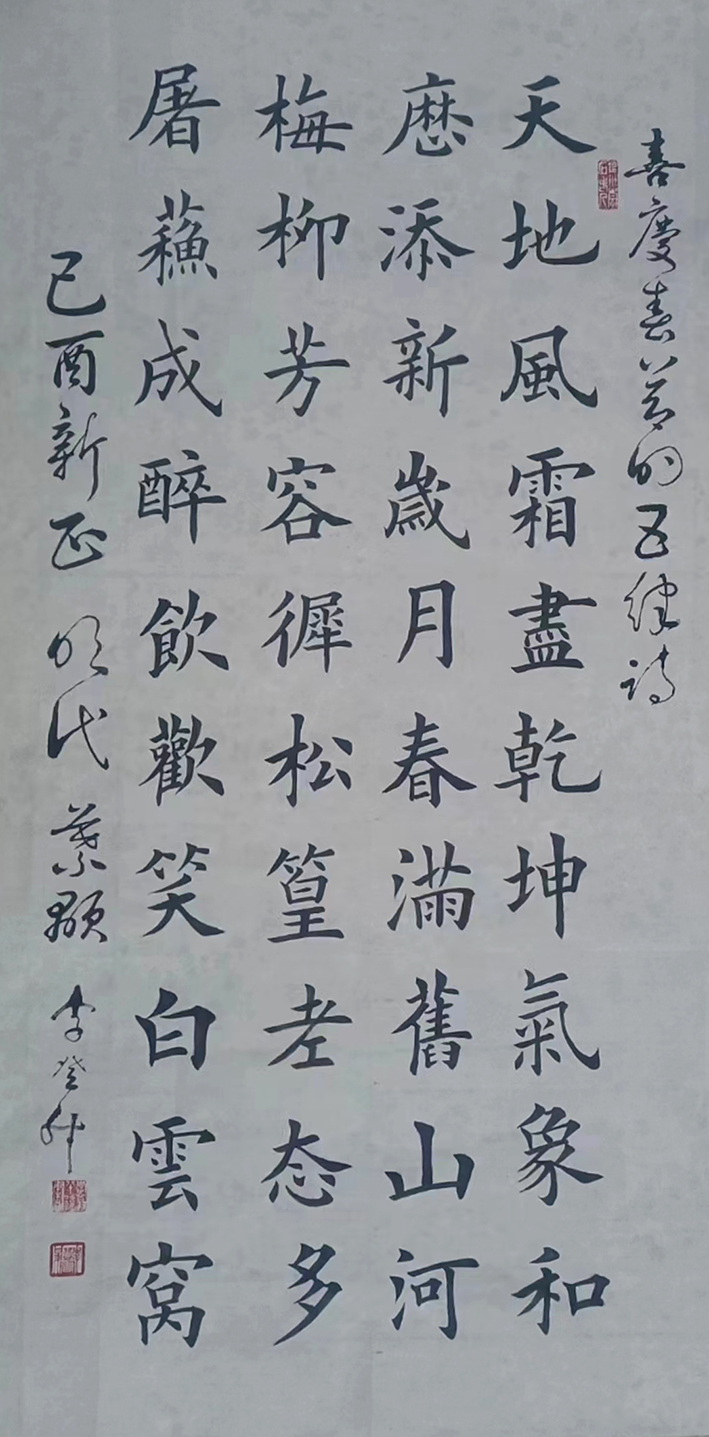 喜慶春節的五律詩
天地風霜盡乾坤氣象和
歷添新歲月春滿舊山河
梅柳芳容徲松篁老态多
屠蘓成醉飲歡笑白雲窝
己酉新正 明代 葉顒 李癸升